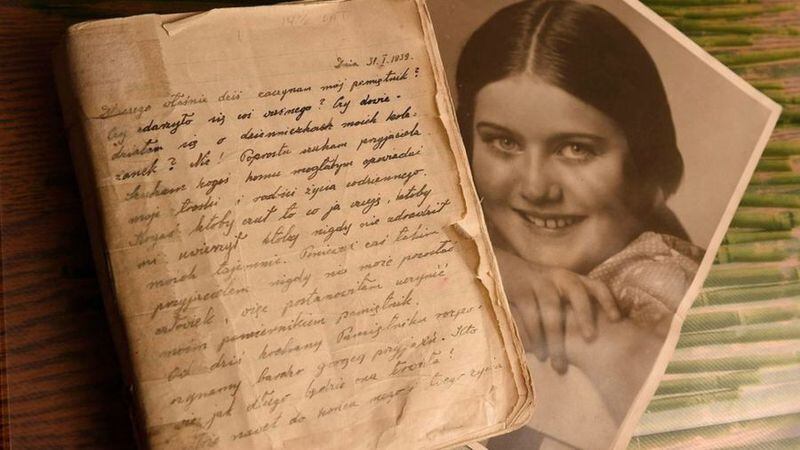 Dnia 31. I. 1939.
Dlaczego właśnie dziś zaczynam mój pamiętnik?
Czy zdarzyło się coś ważnego? Czy dowie-
działam się o dzienniczkach moich kole-
żanek? Nie! Poprostu szukam przyjaciela.
Szukam kogoś komu mogłabym opowiadać
moje troski i radości życia codziennego.
Kogoś ktoby czuł to co ja czuję, ktoby
mi uwierzył ktoby nigdy nie zdradził
moich tajemnic. Ponieważ zaś takim
przyjacielem nigdy nie może pozostać
człowiek, więc postanowiłam uczynić
moim powiernikiem pamiętnik.
Od dziś kochany Pamiętniku rozpo-
czynamy bardzo gorącą przyjaźń. Kto
wie jak długo będzie ona trwała?
nawet do końca życia